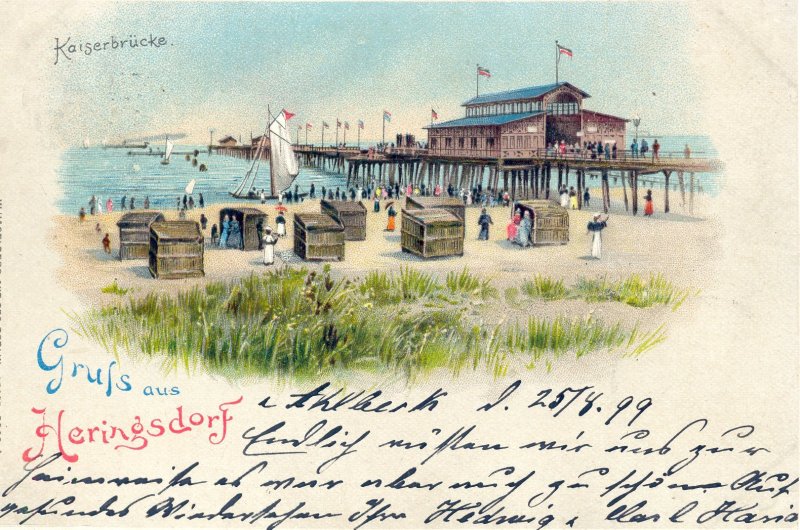 Kaiserbrücke.
Gruſs aus
Heringsdorf
u. Ahlbeck d. 25/8. 99
Endlich rüsten wir uns zur
Heimreise es war aber auch zu schön. Auf
gesundes Wiedersehen Ihre Hedwig u. Karl